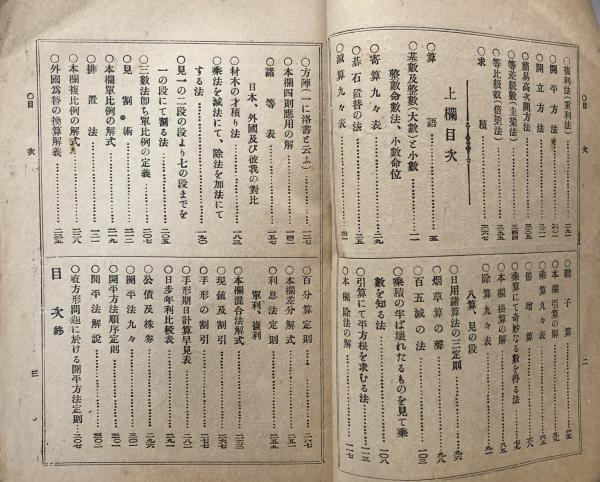 〇目次
二
〇複利法(重利法)……………二九一
〇開平方法……………三〇一
〇開立方法……………三一一
〇簡易高次開方法……………三三五
〇等差級數(圭梁法)……………三四四
〇等比級數(倍梁法)……………三五五
〇求積……………三六七
上欄目次
〇算語……………五
〇基數及整數(大數)と小數……………一一
整數命數法、小數命位
〇寄算九々表……………二九
〇碁石置替の法
〇減算九々表……………四一
〇繼子算……………四五
〇本欄引算の解
〇乘算九々表……………六五
〇倍增算
〇乘算にて奇妙なる數を得る法……………七九
〇本欄掛算の解……………八五
〇除算九々表……………九一
八算、見の段
〇日用諸算法の三定則……………九六
〇烟草算の聲……………九八
〇百五減の法……………一〇三
〇乘積の半ば壞れたるものを見て乘
數を知る法……………一〇八
〇引算にて平方根を求むる法……………一一三
〇本欄除法の解……………一一七
〇方陣(一に洛書と云ふ)……………一二七
〇本欄四則應用の解……………一四一
〇諸等表……………一五七
日本、外國及び彼我の對比
〇材木の才積り法……………一八三
〇乘法を減法にて、除法を加法にて
する法……………一九〇
〇見一の二段の段より七の段までを
一の段にて割る法……………二〇五
〇三數法卽ち單比例の定義……………二〇七
〇見割術……………二一三
〇本欄單比例の解式……………二一九
〇排置法
〇本欄複比例の解式……………二三八
〇外國爲替の換算解義……………二三五
〇百分算定則……………二四七
〇本欄差分解式……………二五一
〇利息法定則……………二五五
單利、複利
〇本欄混合法解式……………二六三
〇現値及割引……………二六七
〇手形の割引……………二七七
〇手形期日計算早見表……………二八二
〇日步年利比較表……………二九一
〇公債及株劵……………二九六
〇開平法九々……………三〇一
〇開平方法順序定則……………三〇一
〇開平法解説……………三〇二
〇直方形問題に於ける開平方法定則……三〇七
目次終
〇目次
三